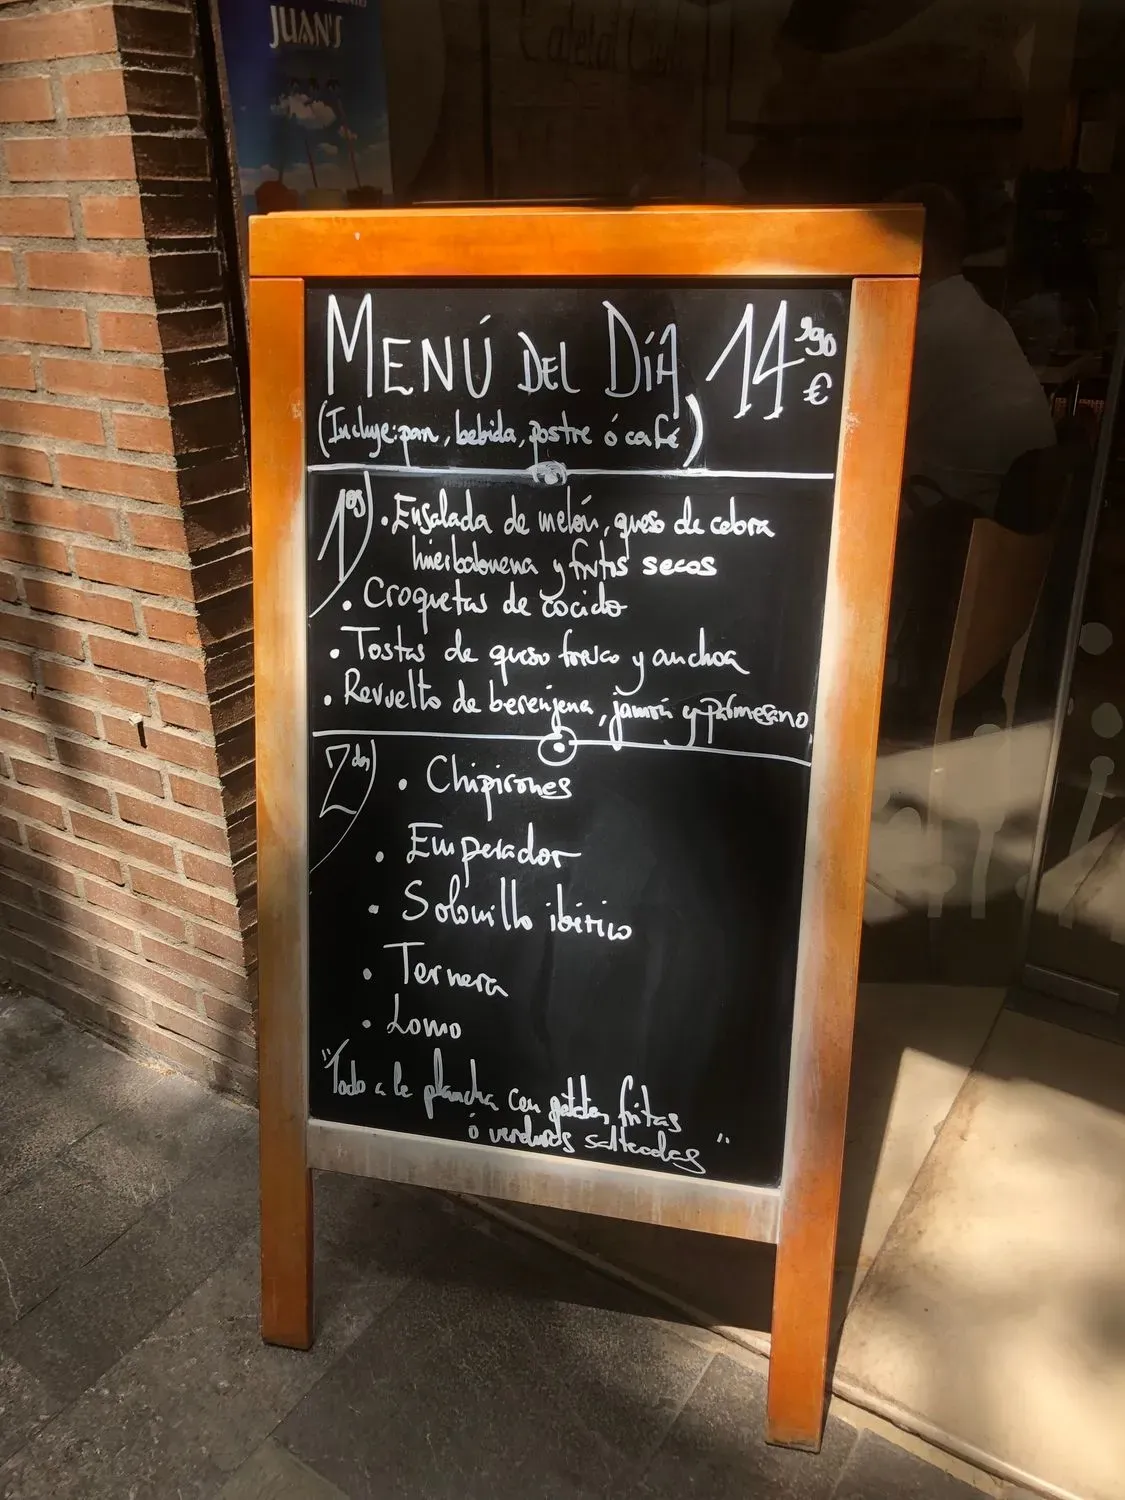 JUAN'S
MENÚ DEL DÍA 14'90 €
(Incluye: pan, bebida, postre ó café)
1os) • Ensalada de melón, queso de cabra
hierbabuena y frutos secos
• Croquetas de cocido
• Tostas de queso fresco y anchoa
• Revuelto de berenjena, jamón y parmesano
2dos) • Chipirones
• Emperador
• Solomillo ibérico
• Ternera
• Lomo
"Todo a la plancha con patatas fritas
ó verduras salteadas"